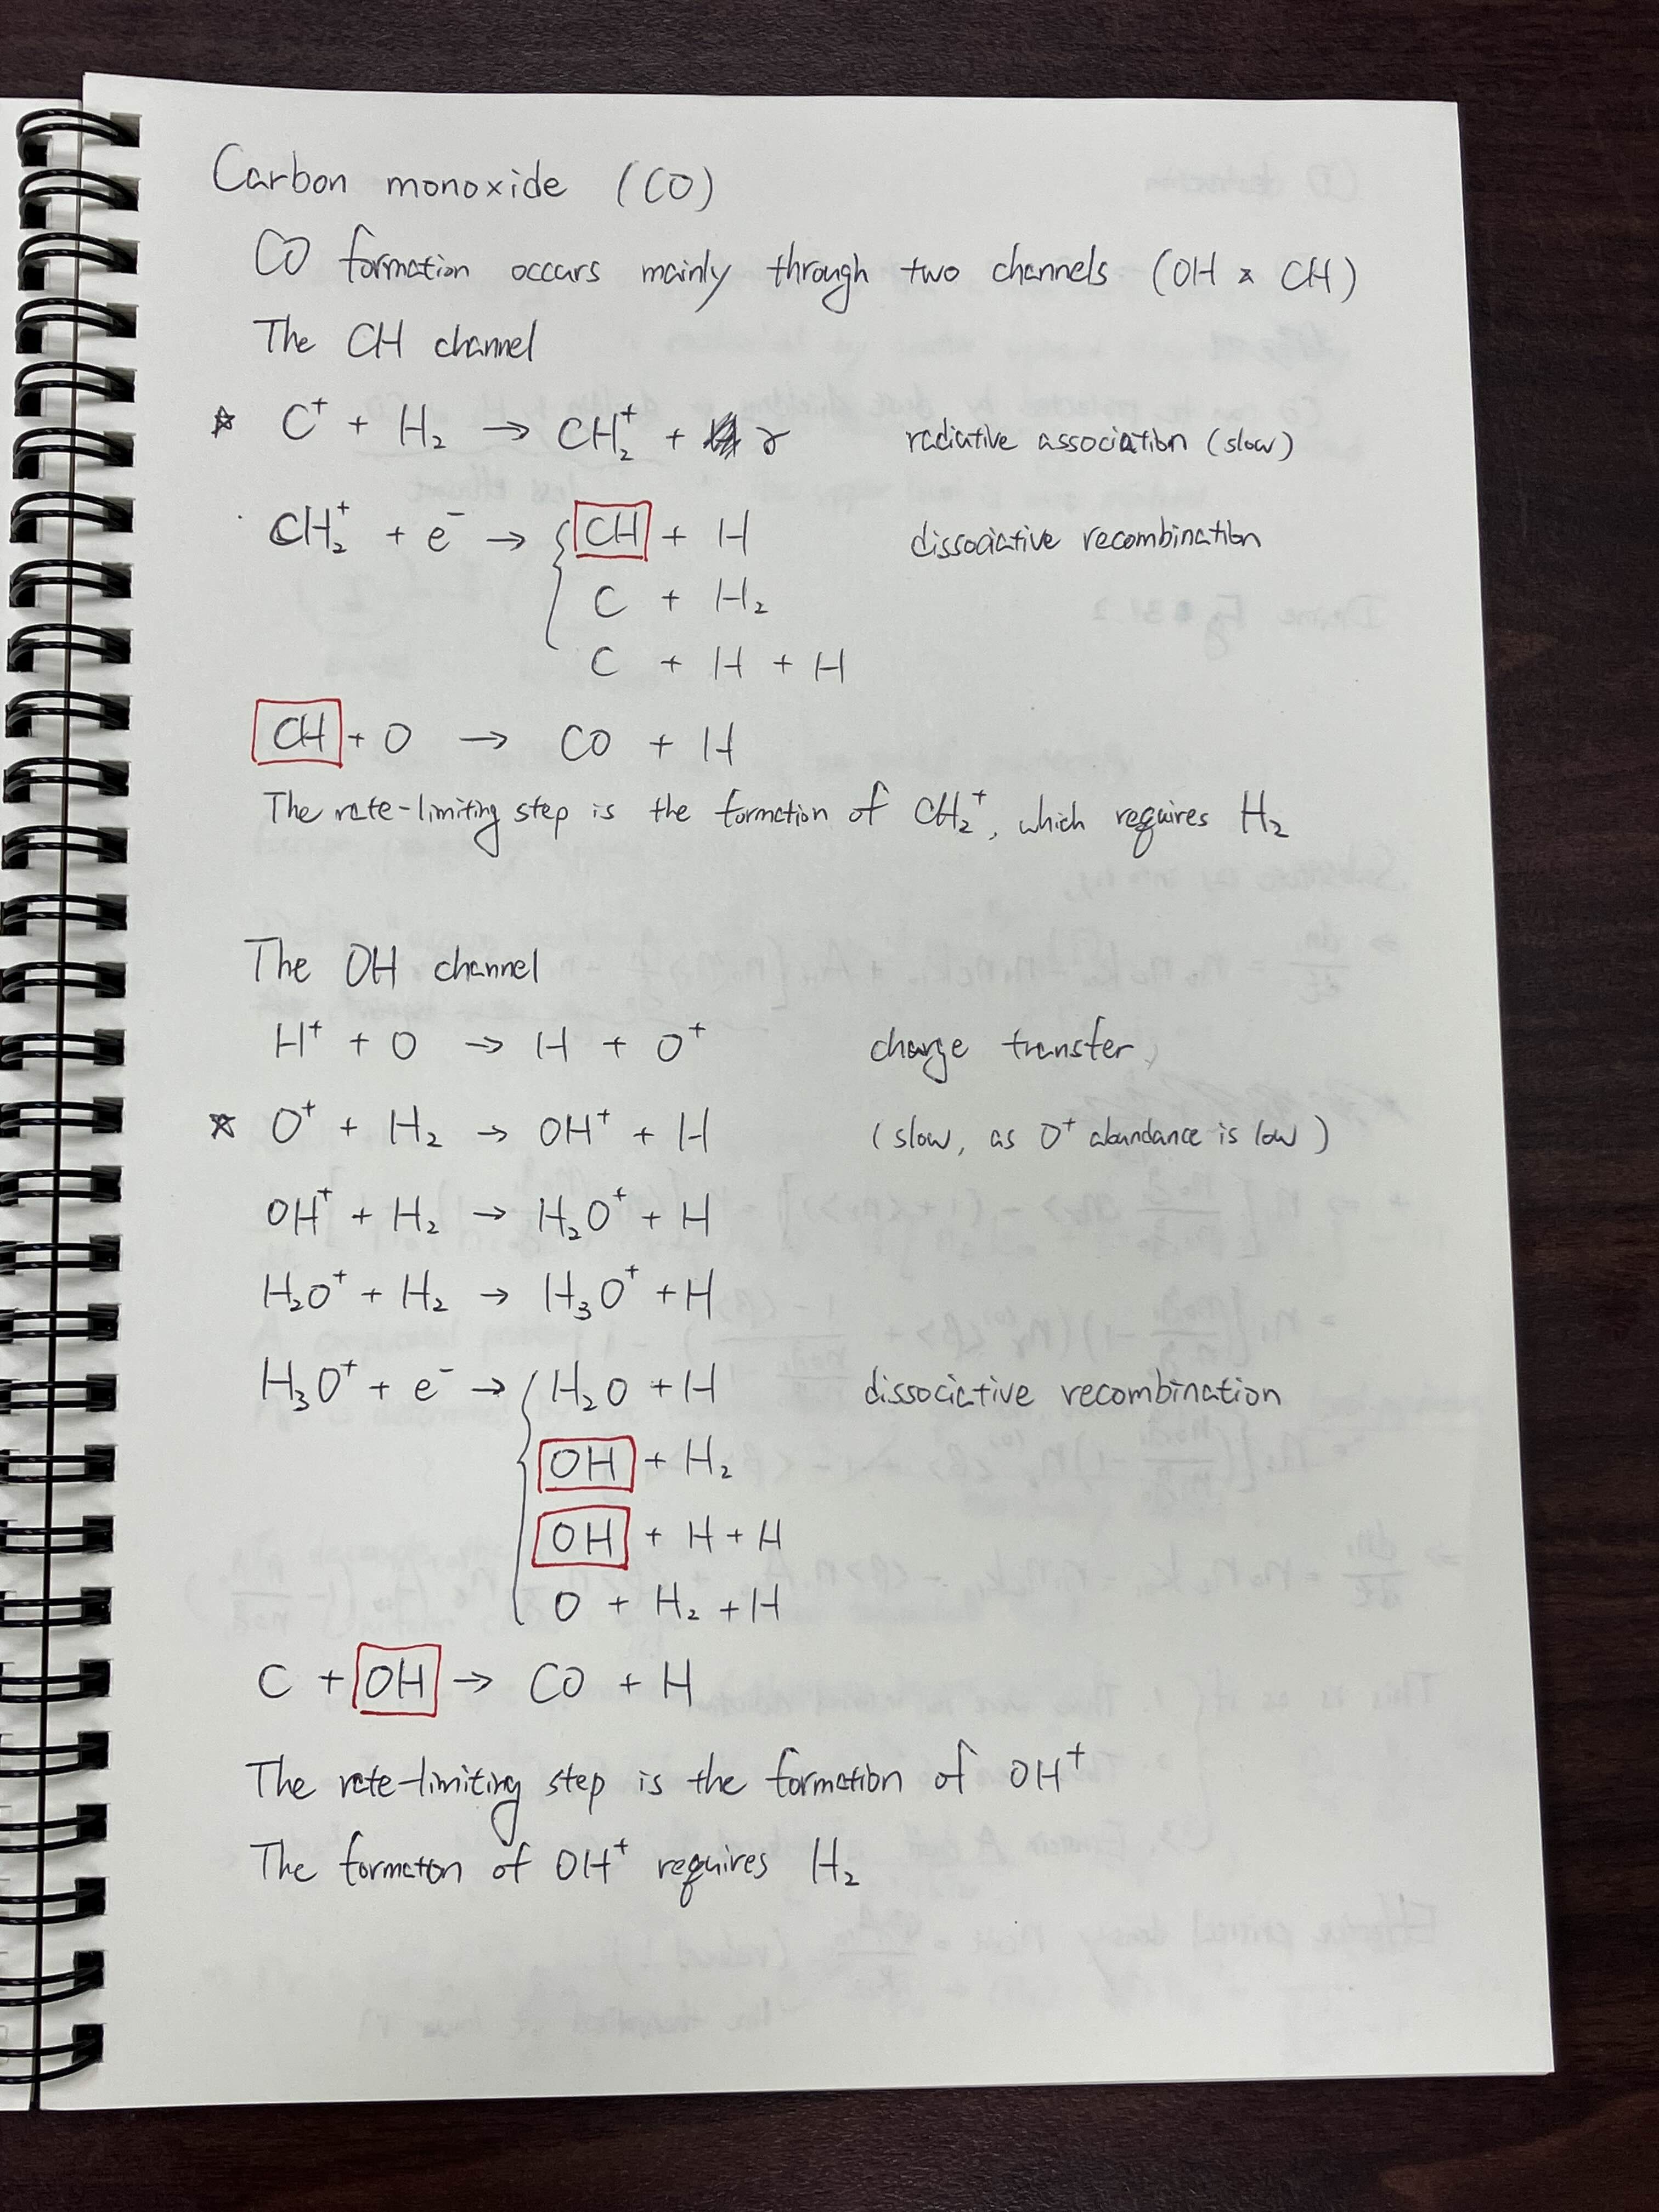 Carbon monoxide (CO)
CO formation occurs mainly through two channels (OH & CH)
The CH channel
☆ C⁺ + H₂ → CH₂⁺ + γ radiative association (slow)
CH₂⁺ + e⁻ → { CH + H dissociative recombination
C + H₂
C + H + H
CH + O → CO + H
The rate-limiting step is the formation of CH₂⁺, which requires H₂
The OH channel
H⁺ + O → H + O⁺ charge transfer
☆ O⁺ + H₂ → OH⁺ + H (slow, as O⁺ abundance is low)
OH⁺ + H₂ → H₂O⁺ + H
H₂O⁺ + H₂ → H₃O⁺ + H
H₃O⁺ + e⁻ → { H₂O + H dissociative recombination
OH + H₂
OH + H + H
O + H₂ + H
C + OH → CO + H
The rate-limiting step is the formation of OH⁺
The formaton of OH⁺ requires H₂